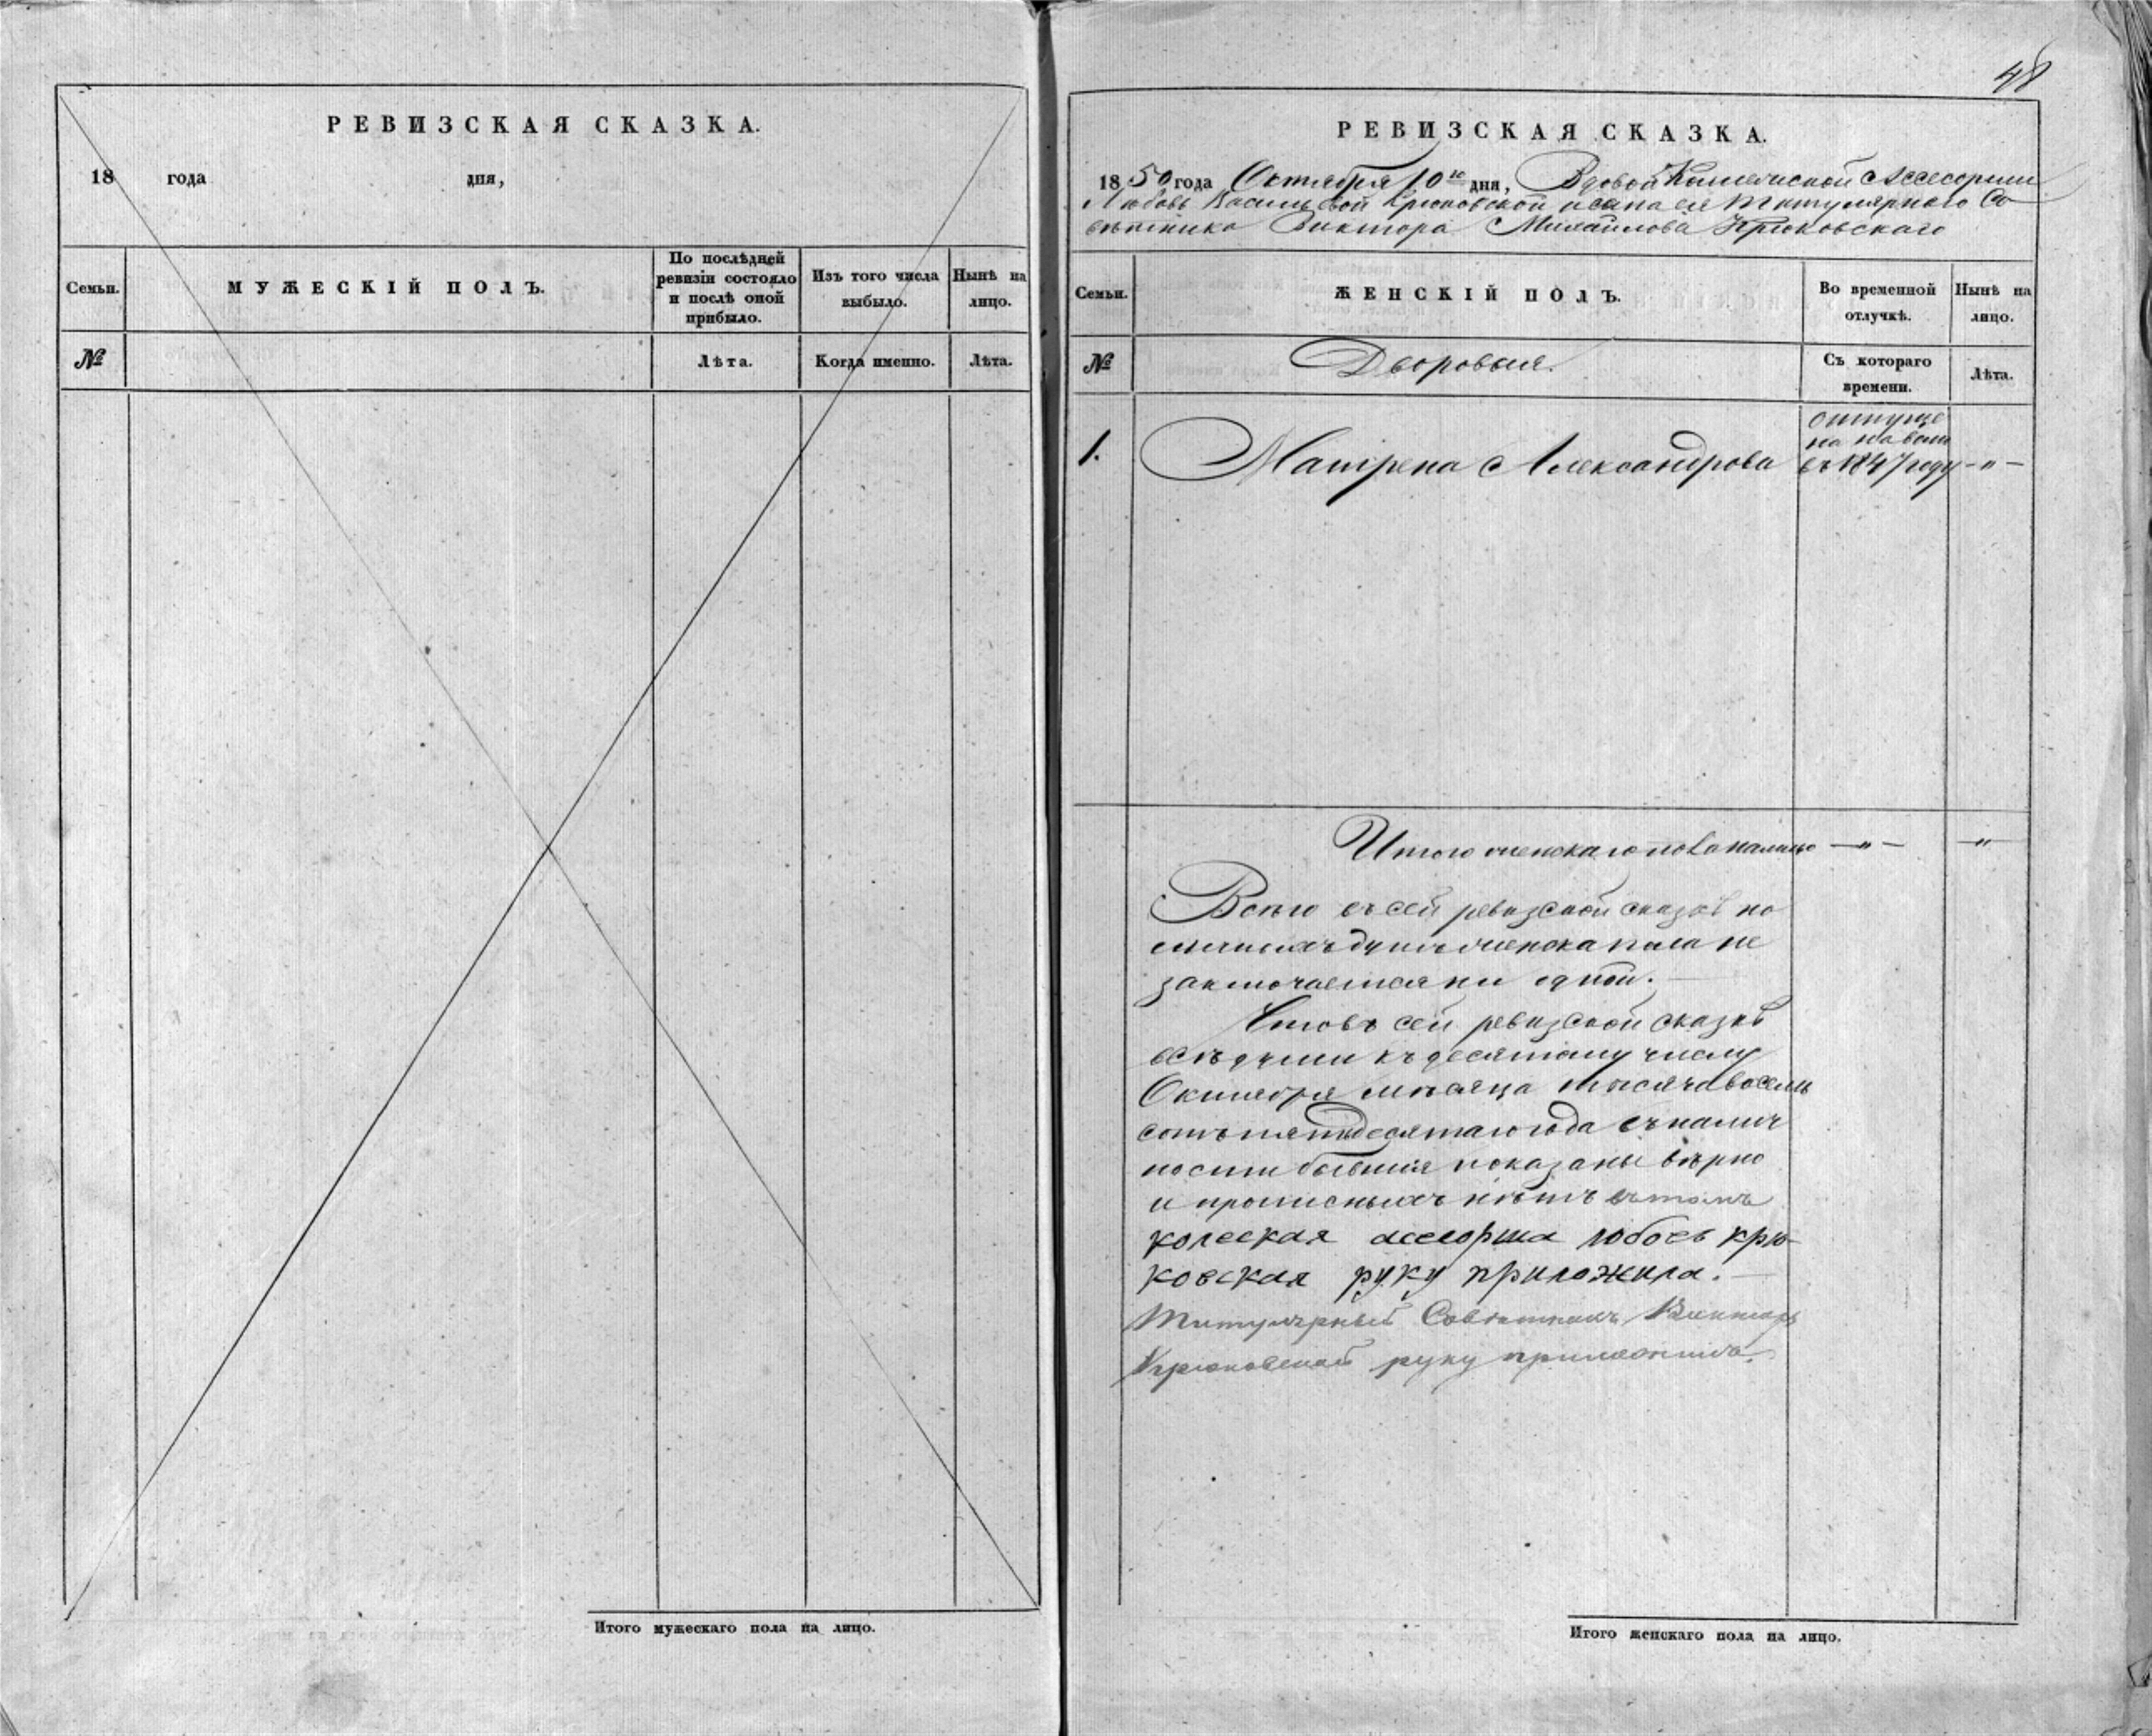 РЕВИЗСКАЯ СКАЗКА.
18 года дня,
Семьи.
МУЖЕСКІЙ ПОЛЪ.
По послѣдней
ревизіи состояло
и послѣ оной
прибыло.
Изъ того числа
выбыло.
Нынѣ на
лицо.
№
Лѣта.
Когда именно.
Лѣта.
Итого мужескаго пола на лицо.
48
РЕВИЗСКАЯ СКАЗКА.
1850 года Октября 10го дня, Вдовой Коллежской Ассесорши
Любовь Васильевой Крюковской и сына ея Титулярнаго Со
вѣтника Виктора Михайлова Крюковскаго
Семьи.
ЖЕНСКІЙ ПОЛЪ.
Во временной
отлучкѣ.
Нынѣ на
лицо.
№
Дворовыя.
Съ котораго
времени.
Лѣта.
1.
Матрена Александрова
отпуще
на на волю
въ 1847 году
-"-
Итого женскаго пола налицо -"- -"-
Всего въ сей ревизской сказкѣ но
душъ женска пола не
заключается ни одной.
Что въ сей ревизской сказкѣ
всѣ души къ десятому числу
Октября мѣсяца тысяча восемь
сотъ пятьдесятаго года въ налич
ности бывшія показаны вѣрно
и прописныхъ нѣтъ въ томъ
колеская ассесорша любовь крю-
ковская руку приложила.
Титулярный Совѣтникъ Викторъ
Крюковской руку приложилъ.
Итого женскаго пола на лицо.